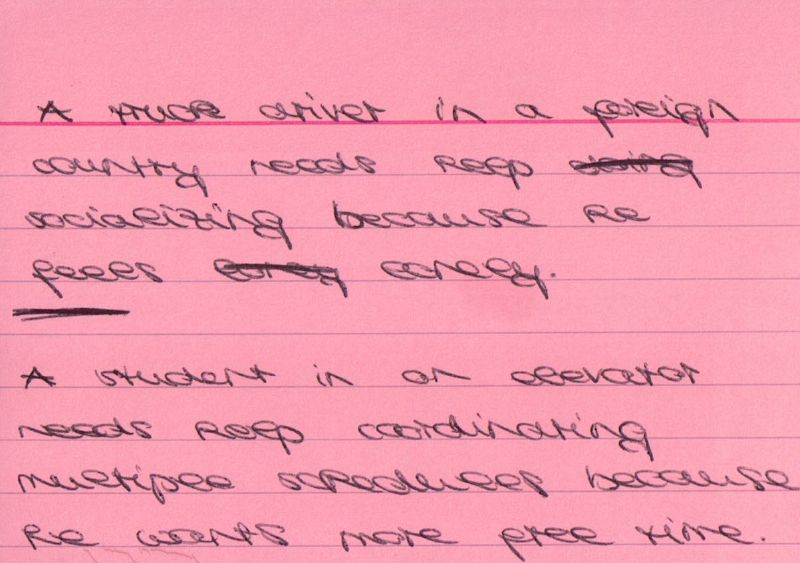 A truck driver in a foreign
country needs help doing
socializing because he
feels lonely lonely.
A student in an elevator
needs help coordinating
multiple schedules because
he wants more free time.